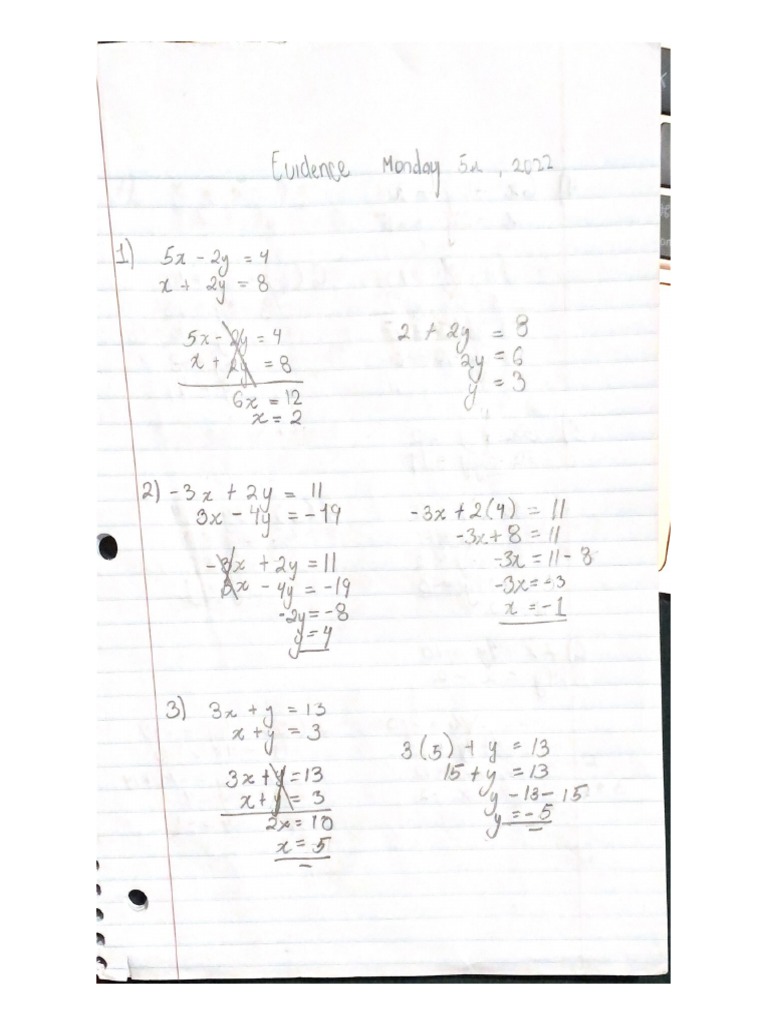 Evidence Monday 5th, 2022
1) 5x - 2y = 4
x + 2y = 8
5x - 2y = 4
x + 2y = 8
6x = 12
x = 2
2 + 2y = 8
2y = 6
y = 3
2) -3x + 2y = 11
3x - 4y = -19
-3x + 2y = 11
3x - 4y = -19
-2y = -8
y = 4
-3x + 2(4) = 11
-3x + 8 = 11
-3x = 11 - 8
-3x = -3
x = -1
3) 3x + y = 13
x + y = 3
3x + y = 13
x + y = 3
2x = 10
x = 5
3(5) + y = 13
15 + y = 13
y - 13 - 15
y = -5